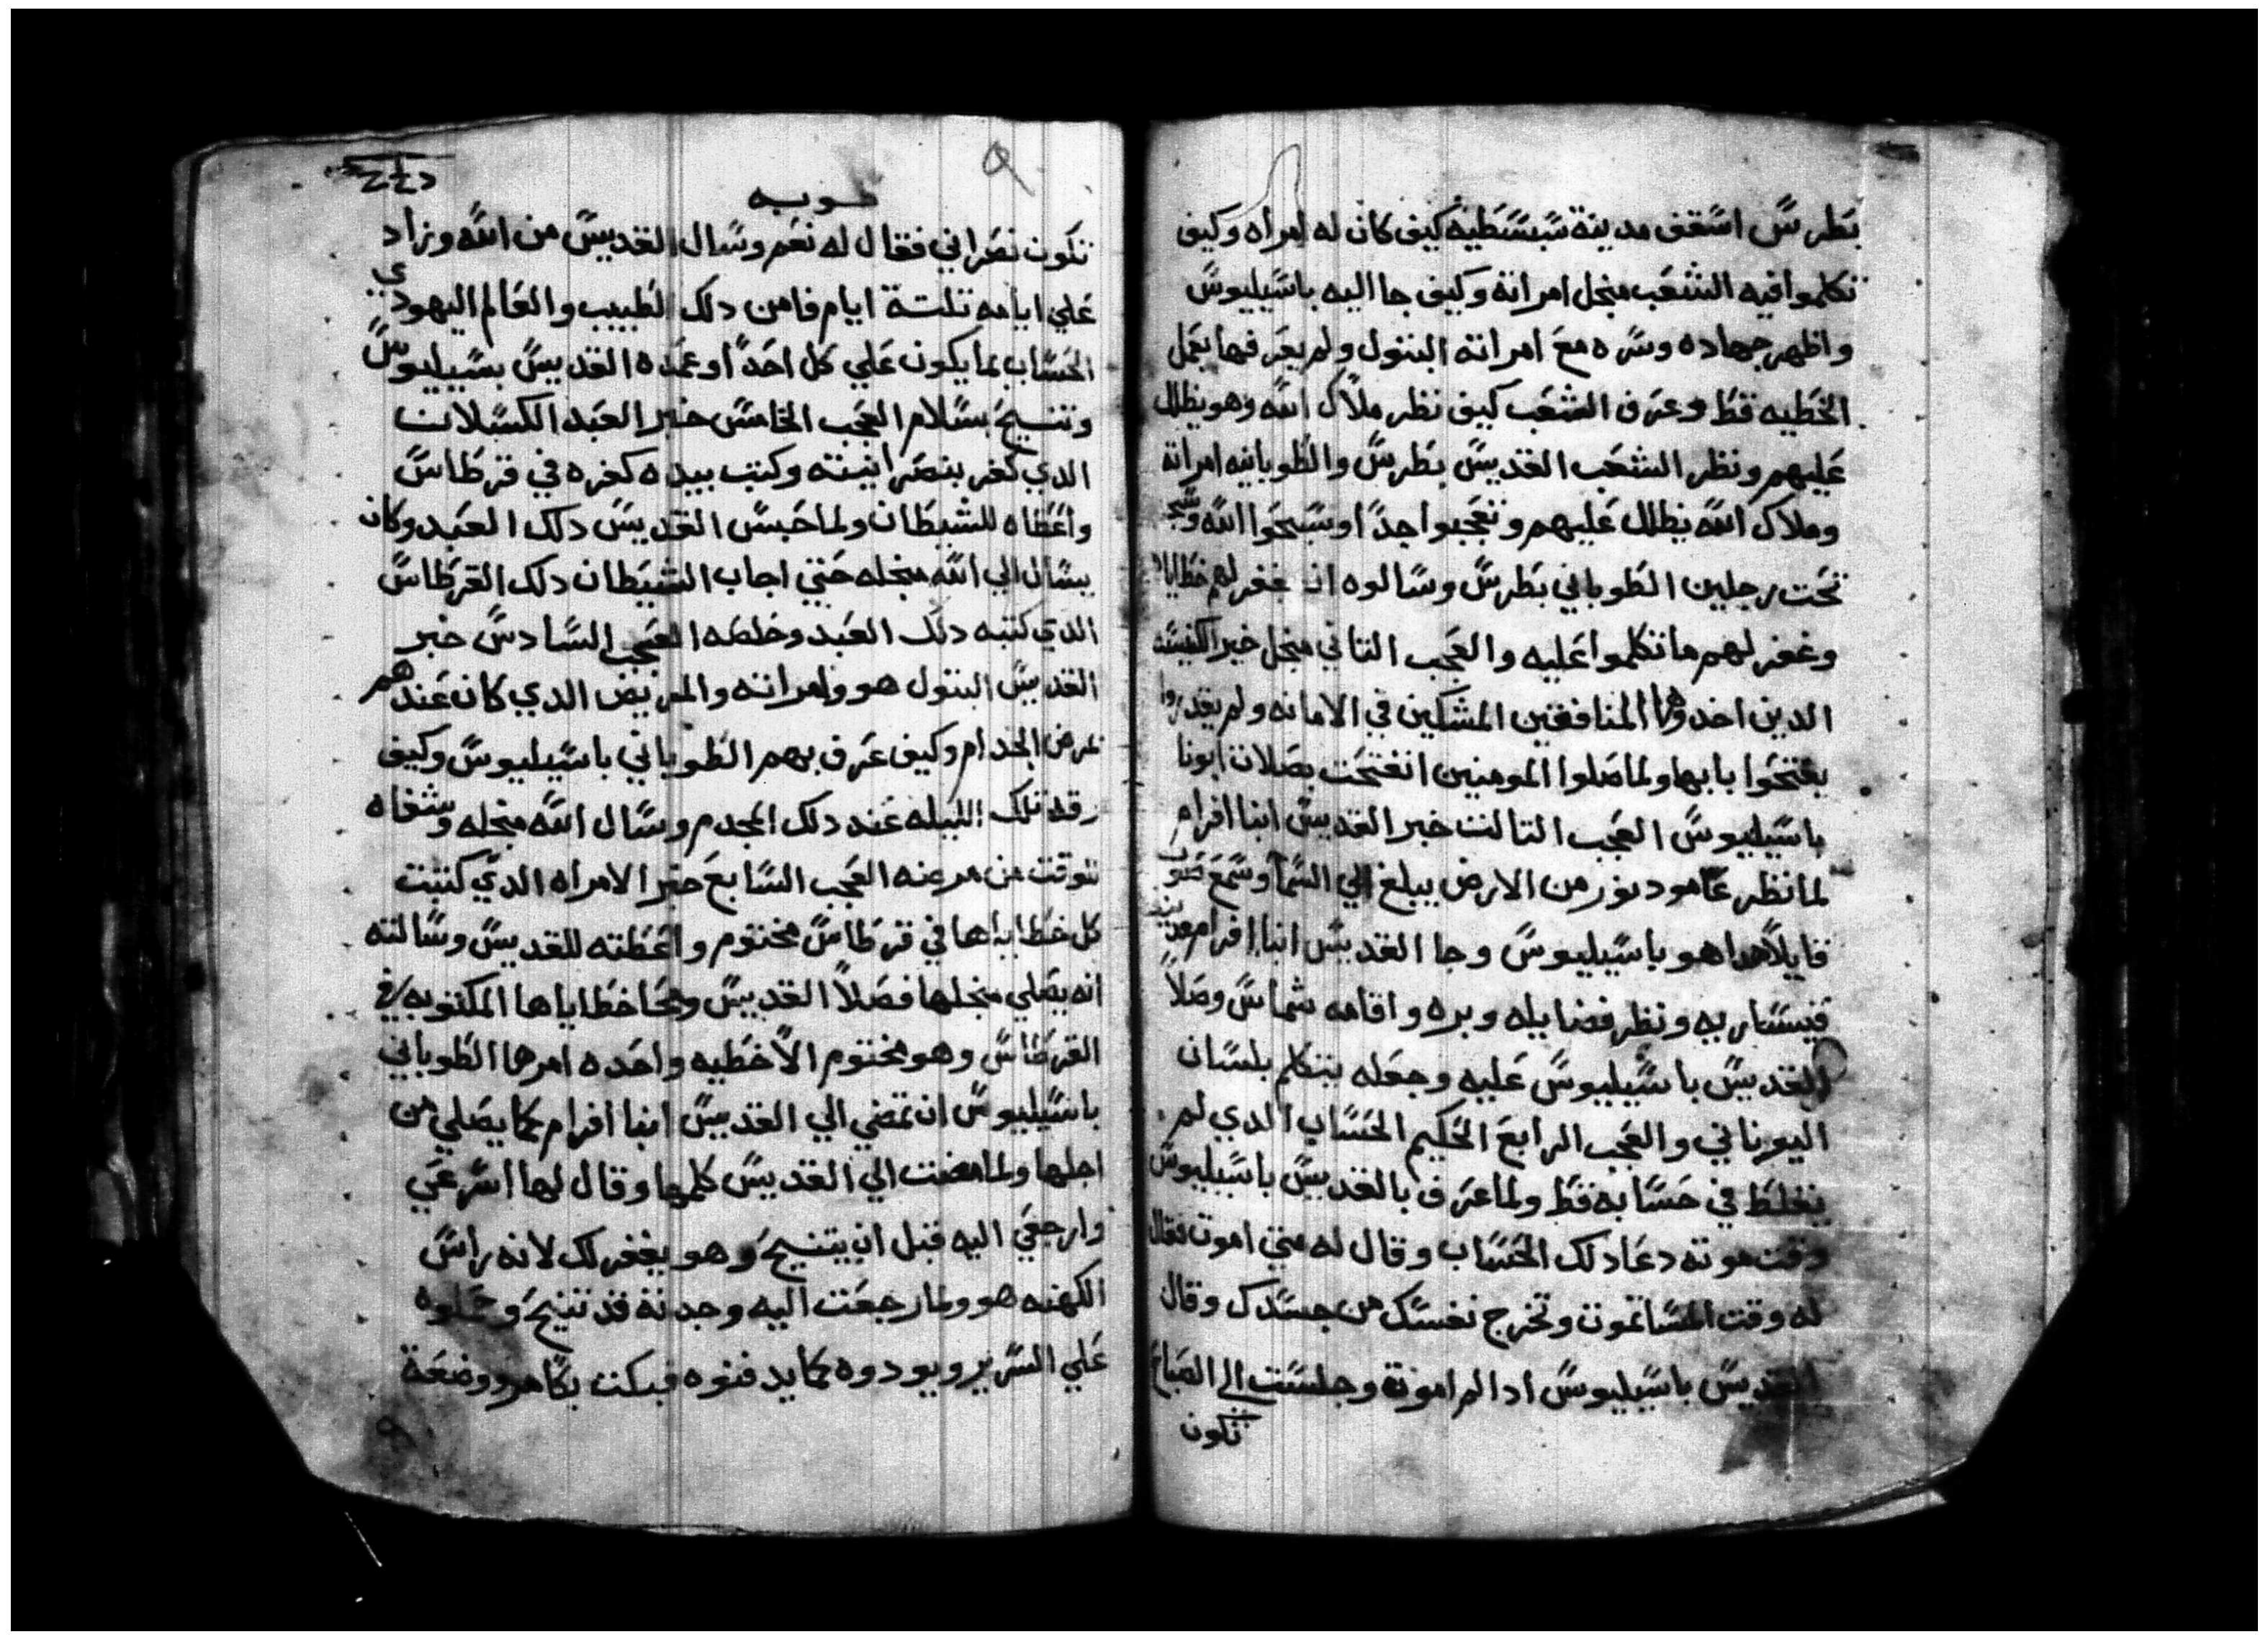 بطرس اسقف مدينة سبسطيه كيف كان له امراه وكيف
تكلموا فيه الشعب منجل امراتة وكيف جا اليه باسيليوس
واظهر جهاده وسره مع امراته البتول ولم يعرفها بعمل
الخطيه قط وعرف الشعب كيف نظر ملاك الله وهو يظلل
عليهم ونظر الشعب القديس بطرس والطوبانيه امراتة
وملاك الله يظلل عليهم وتعجبوا جدا وسبحوا الله
تحت رجلين الطوباني بطرس وسالوه ان يغفر لهم خطاياه
وغفر لهم ما تكلموا عليه والعجب التاني منجل خبر الكنيسه
الدين اخدوها المنافقين المشكين في الامانه ولم يقدروا
يفتحوا بابها ولما صلوا المومنين انفتحت بصلات ابونا
باسيليوس العجب التالت خبر القديس انبا افرام
لما نظر عامود نور من الارض يبلغ الي السما وسمع صوت
قايلا هدا هو باسيليوس وجا القديس انبا افرام
قيسارية ونظر فضايله وبره واقامه شماس وصلا
القديس باسيليوس عليه وجعله يتكلم بلسان
اليوناني والعجب الرابع الحكيم الحساب الدي لم
يغلط في حسابه قط ولما عرف بالقديس باسيليوس
وقت موته دعا دلك الحساب وقال له متي اموت فقال
له وقت المسا تموت وتخرج نفسك من جسدك وقال
القديس باسيليوس ادا لم اموت وجلست الي الصباح
تكون
تكون نصراني فقال له نعم وسال القديس من الله وزاد
علي ايامه تلتة ايام فامن دلك الطبيب والعالم اليهودي
الحساب بما يكون علي كل احدا وعمده القديس بسيليوس
وتنيح بسلام العجب الخامس خبر العبد الكسلان
الدي كفر بنصرانيته وكتب بيده كفره في قرطاس
واعطاه للشيطان ولما حبس القديس دلك العبد وكان
يسال الي الله منجله حتي اجاب الشيطان دلك القرطاس
الدي كتبه دلك العبد وخلصه العجب السادس خبر
القديس البتول هو وامراته والمريض الدي كان عندهم
بمرض الجدام وكيف عرف بهم الطوباني باسيليوس وكيف
رقد تلك الليله عند دلك المجدم وسال الله منجله وشفاه
للوقت من مرضه العجب السابع خبر الامراه الدي كتبت
كل خطاياها في قرطاس مختوم واعطته للقديس وسالته
انه يصلي منجلها فصلا القديس ومحا خطاياها المكتوبه في
القرطاس وهو مختوم الا خطيه واحده امرها الطوباني
باسيليوس ان تمضي الي القديس انبا افرام كما يصلي من
اجلها ولما مضت الي القديس كلمها وقال لها اسرعي
وارجعي اليه قبل ان يتنيح وهو يغفر لك لانه راس
الكهنه هو ولما رجعت اليه وجدته قد تنيح وحملوه
علي السرير ويودوه كما يدفنوه فبكت بكا مر ووضعة